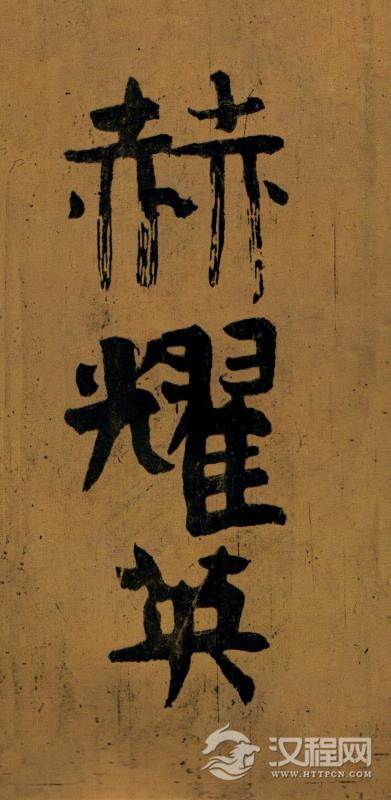 赫耀英
汉程网
WWW.HTTPCN.COM